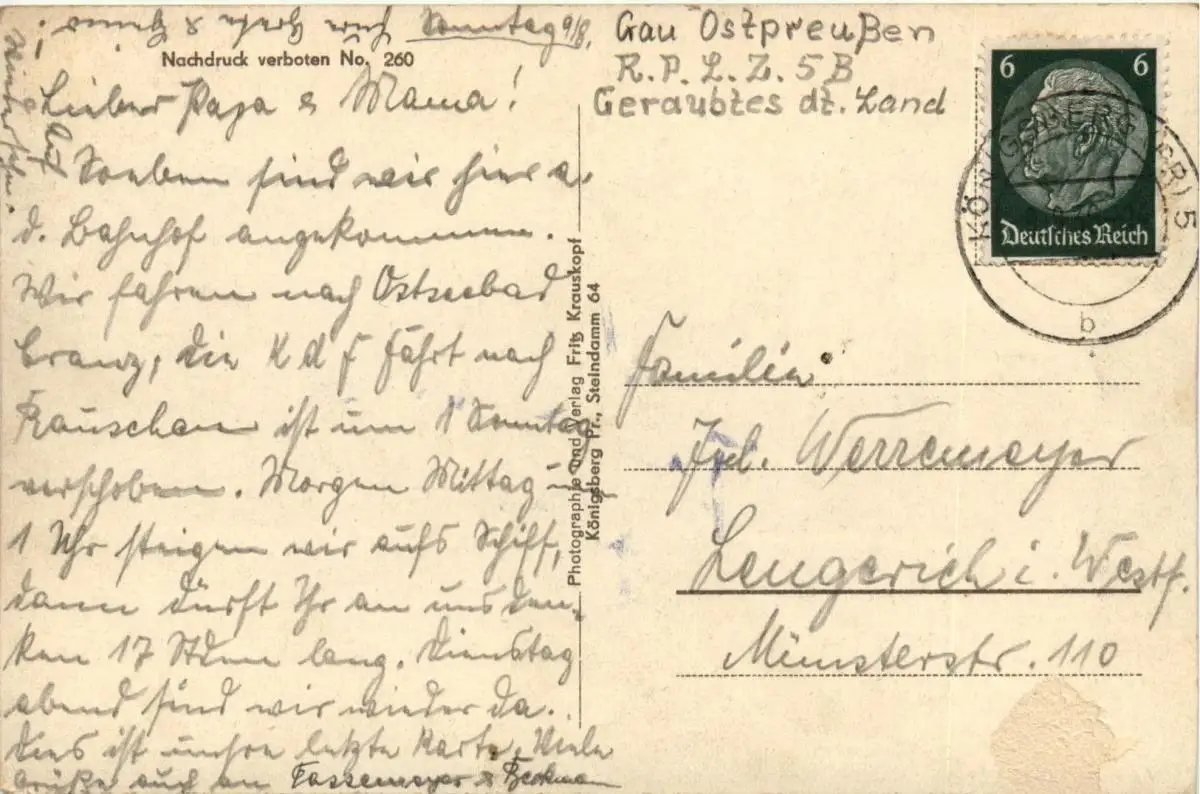 Sonntag 9/8.
Nachdruck verboten No. 260
Lieber Papa & Mama!
Soeben sind wir hier a.
d. Bahnhof angekommen.
Wir fahren nach Ostseebad
Cranz, die K d F Fahrt nach
Rauschen ist um 1 Sonntag
verschoben. Morgen Mittag um
1 Uhr steigen wir aufs Schiff,
dann dürft Ihr an uns den-
ken 17 Stden lang. Dienstag
abend sind wir wieder da.
Dies ist unsre letzte Karte. Viele
Grüße auch an Fassemeyer & Beckmann
Auf
Wiedersehn.
Photographie und Verlag Fritz Krauskopf
Königsberg Pr., Steindamm 64
Gau Ostpreußen
R. P. L. Z. 5 B
Geraubtes dt. Land
6 6
Deutsches Reich
KÖNIGSBERG (PR) 5
b
Familie
Werremeyer
Lengerich i. Westf.
Münsterstr. 110